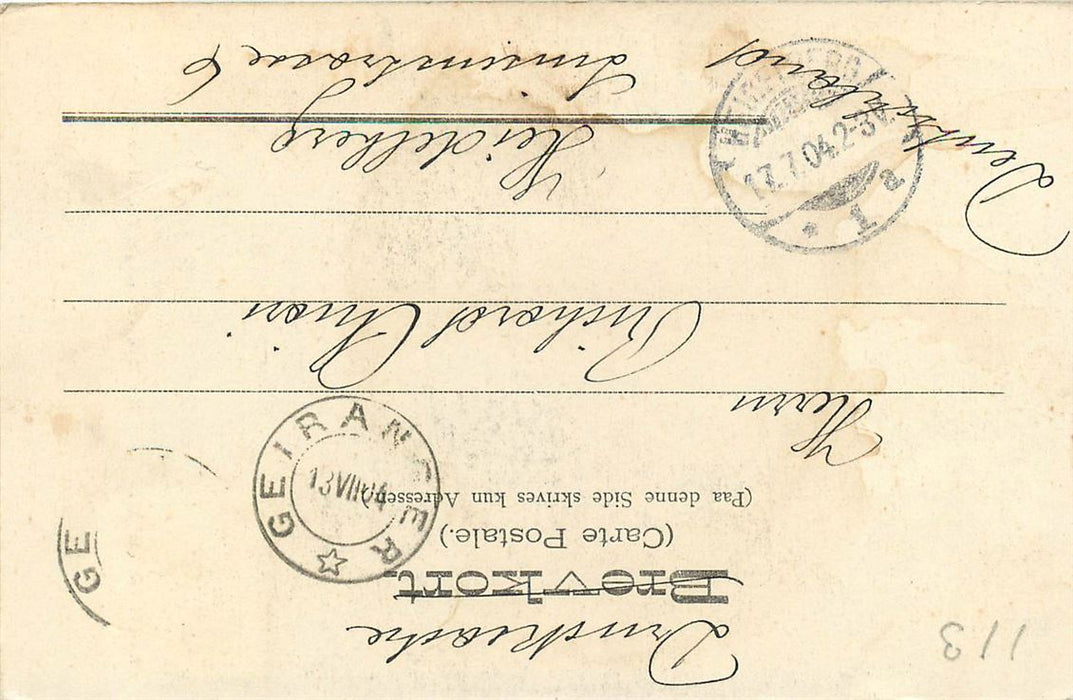 Drucksache
Brevkort.
(Carte Postale.)
(Paa denne Side skrives kun Adressen)
Herrn
Richard
Heidelberg
6
Deutschland
GEIRANGER
13 VII 04
GE
HEIDELBERG
17.7.04.2-3
1
a
113